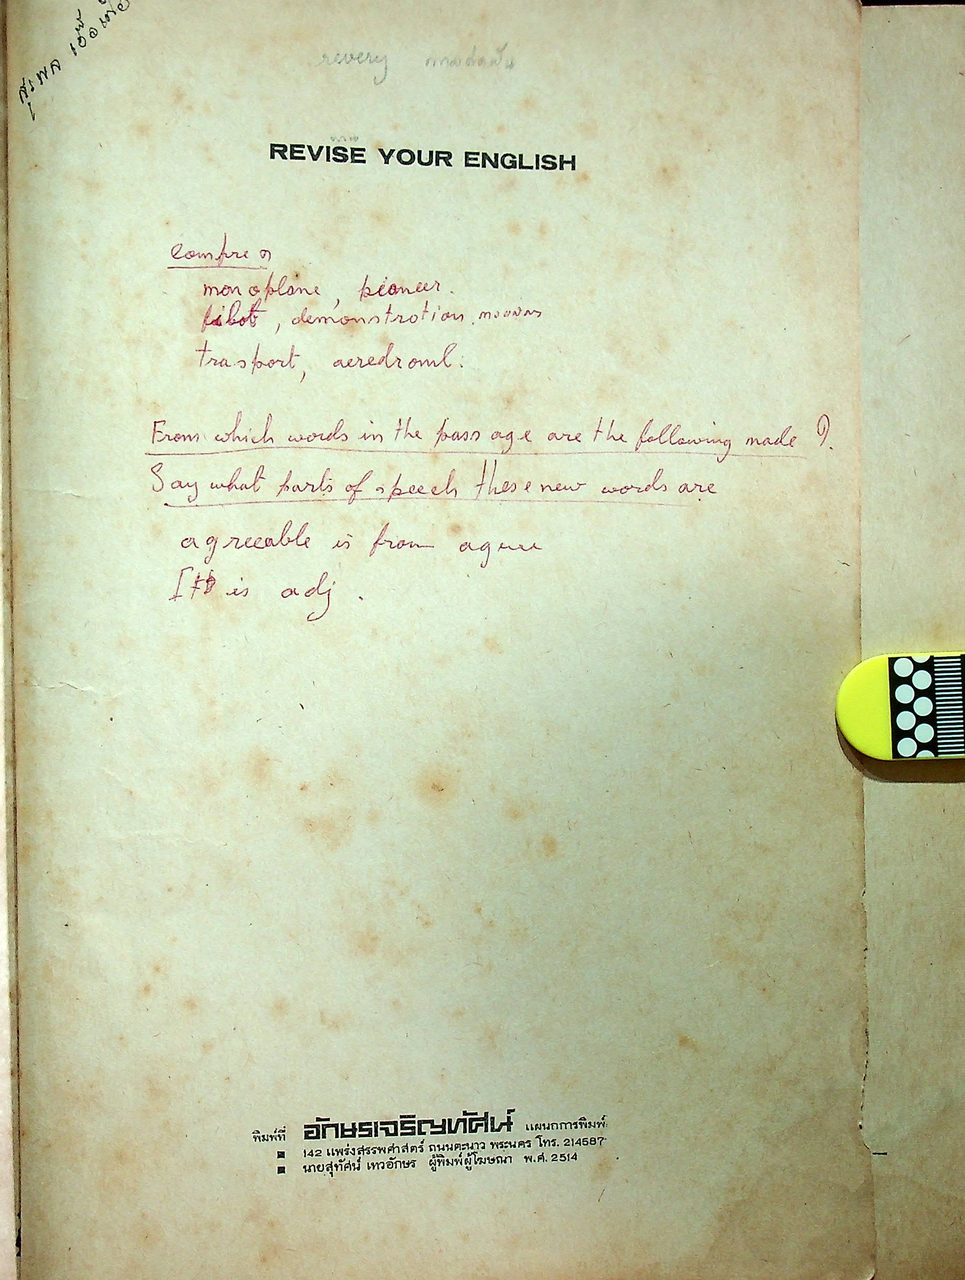 สุรพล
revery
REVISE YOUR ENGLISH
monoplane, pioneer.
pilot, demonstration,
trasport, aeredroml.
From which words in the passage are the following made ?
Say what parts of speech these new words are
agreeable is from
It is adj.
พิมพ์ที่ อักษรเจริญทัศน์ แผนกการพิมพ์
142 แพร่งสรรพศาสตร์ ถนนตะนาว พระนคร โทร. 214587
นายสุทัศน์ เทวอักษร ผู้พิมพ์ผู้โฆษณา พ.ศ. 2514